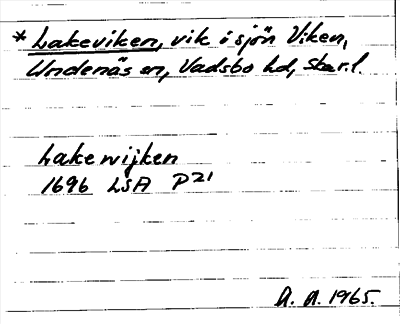 * Lakeviken, vik i sjön Viken,
Undenäs sn, Vadsbo hd, Skar.l.
Lakewijken
1696 LSA P21
A. A. 1965.